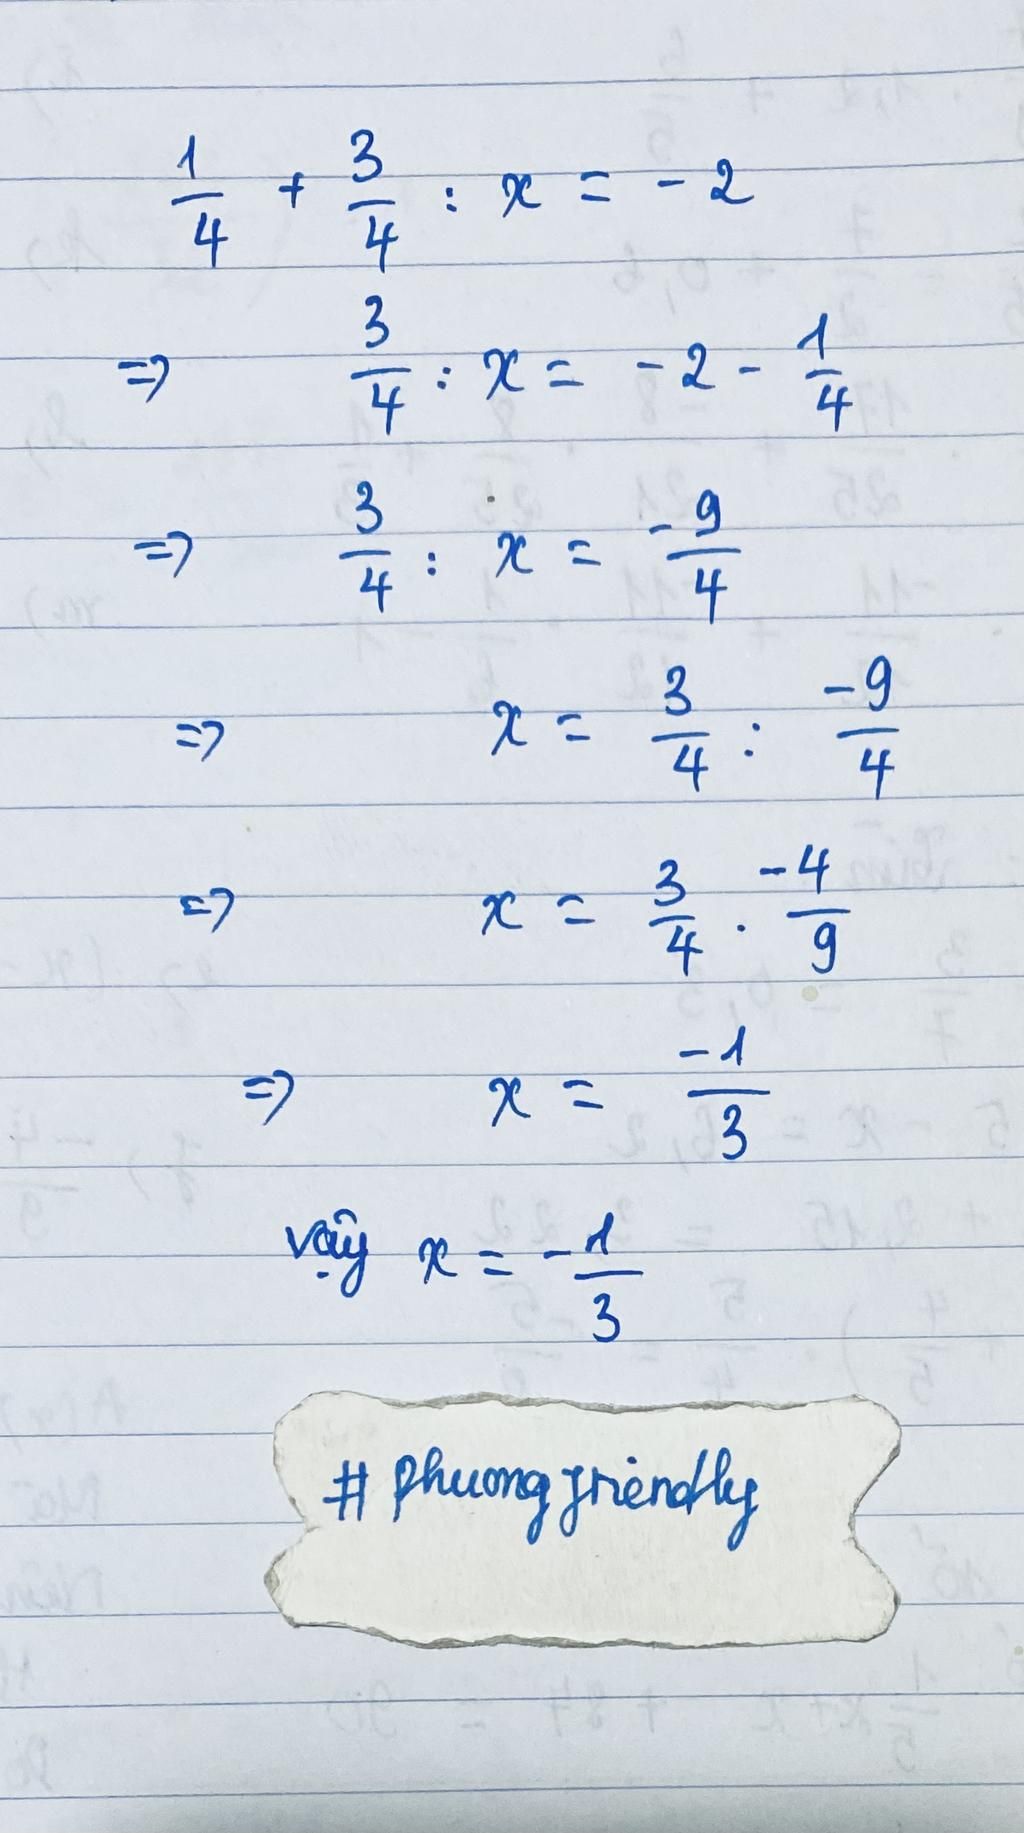 1/4 + 3/4 : x = -2
=> 3/4 : x = -2 - 1/4
=> 3/4 : x = -9/4
=> x = 3/4 : -9/4
=> x = 3/4 . -4/9
=> x = -1/3
vậy x = -1/3
# phuongfriendly